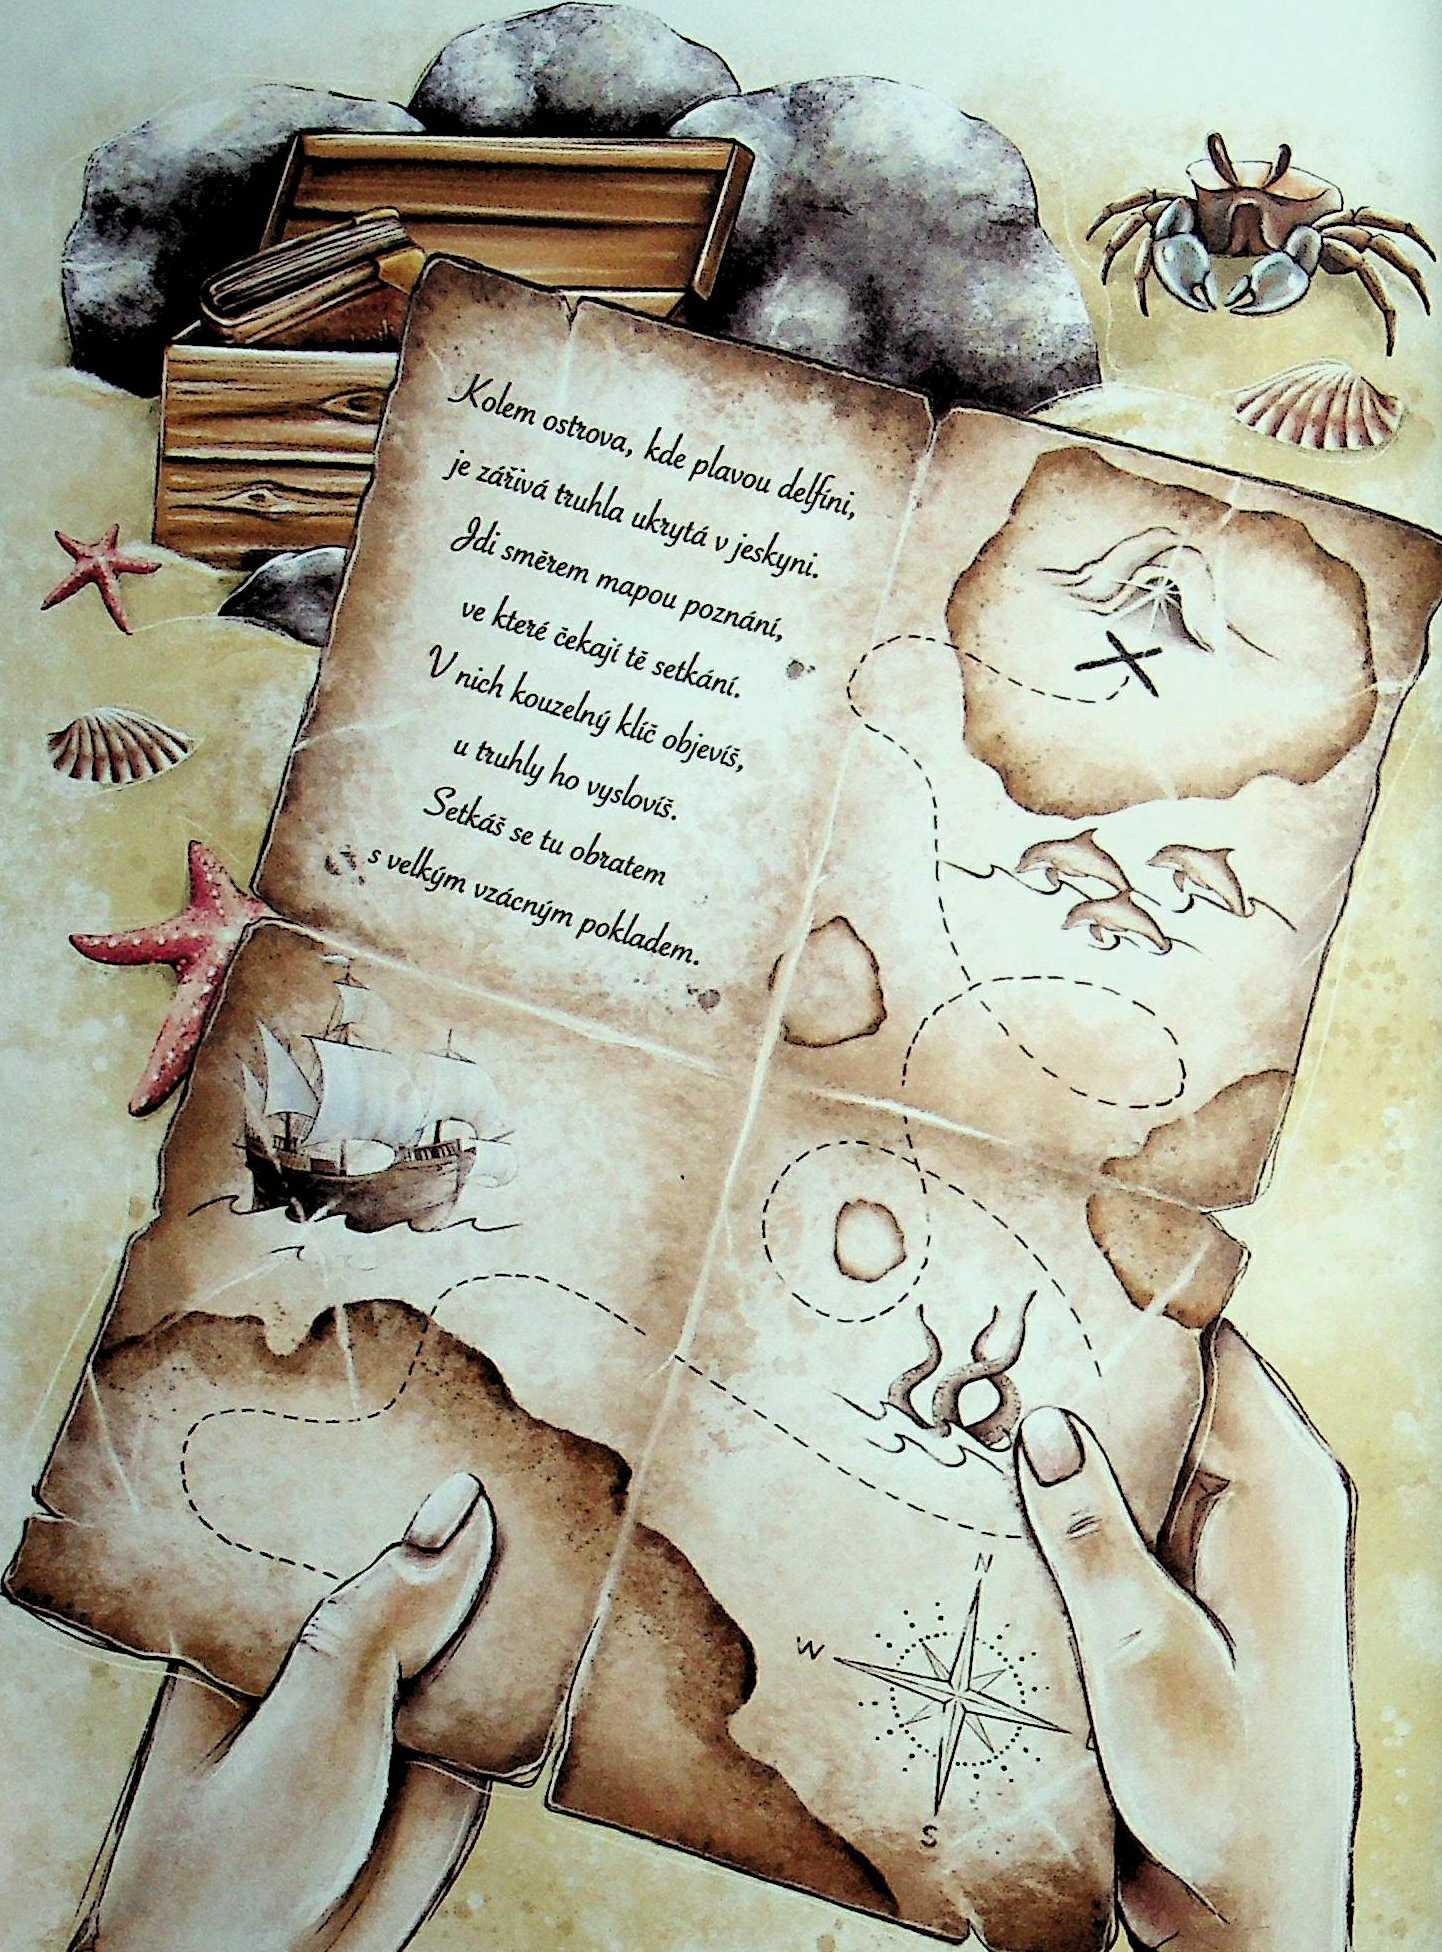 Kolem ostrova, kde plavou delfíni,
je zářivá truhla ukrytá v jeskyni.
Jdi směrem mapou poznání,
ve které čekají tě setkání.
V nich kouzelný klíč objevíš,
u truhly ho vyslovíš.
Setkáš se tu obratem
s velkým vzácným pokladem.
N
W
S